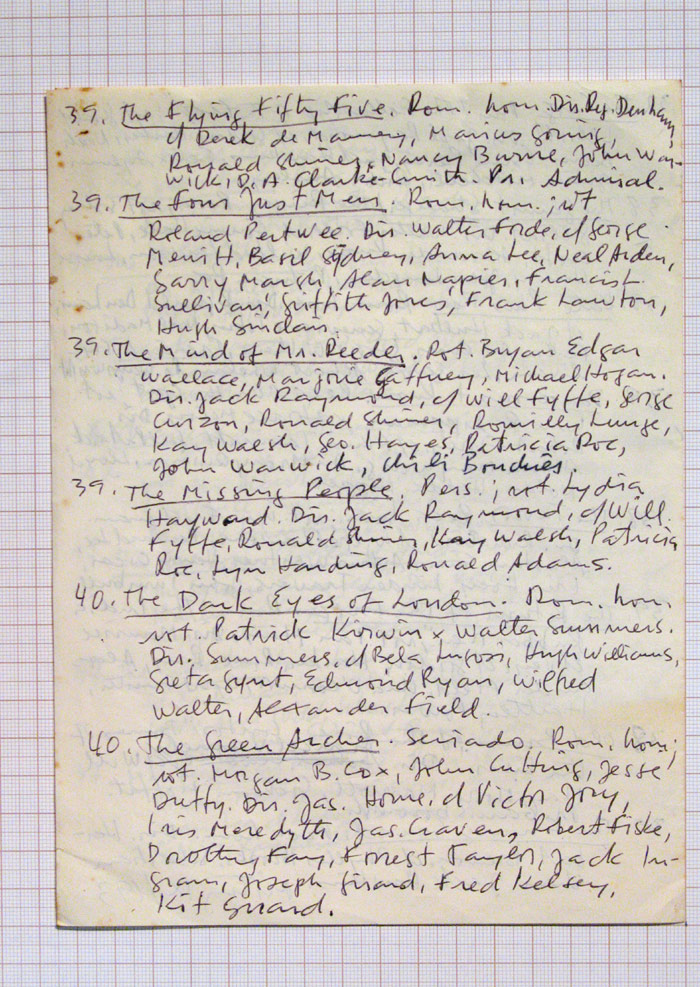 39. The Flying Fifty Five. Rom. hom. Dir. Reg. Denham,
c/ Derek de Marney, Marius Goring,
Ronald Shiner, Nancy Burne, John War-
wick, D. A. Clarke-Smith. Pr. Admiral.
39. The Four Just Men. Rom. hom.; rot
Roland Pertwee. Dir. Walter Forde, c/ George
Merritt, Basil Sydney, Anna Lee, Neal Arden,
Garry Marsh, Alan Napier, Francis L.
Sullivan, Griffith Jones, Frank Lawton,
Hugh Sinclair.
39. The Mind of Mr. Reeder. Rot. Bryan Edgar
Wallace, Marjorie Gaffney, Michael Hogan.
Dir. Jack Raymond, c/ Will Fyffe, George
Curzon, Ronald Shiner, Romilly Lunge,
Kay Walsh, Geo. Hayes, Patricia Roc,
John Warwick, Chili Bouchier.
39. The Missing People. Pers.; rot. Lydia
Hayward. Dir. Jack Raymond, c/ Will
Fyffe, Ronald Shiner, Kay Walsh, Patricia
Roc, Lyn Harding, Ronald Adams.
40. The Dark Eyes of London. Rom. hom.
rot. Patrick Kirwin x Walter Summers.
Dir. Summers. c/ Bela Lugosi, Hugh Williams,
Greta Gynt, Edmond Ryan, Wilfred
Walter, Alexander Field.
40. The Green Archer. Seriado. Rom. hom;
rot. Morgan B. Cox, John Cutting, Jesse
Duffy. Dir. Jas. Horne. c/ Victor Jory,
Iris Meredyth, Jas. Craven, Robert Fiske,
Dorothy Fay, Forrest Taylor, Jack In-
gram, Joseph Girard, Fred Kelsey,
Kit Guard.